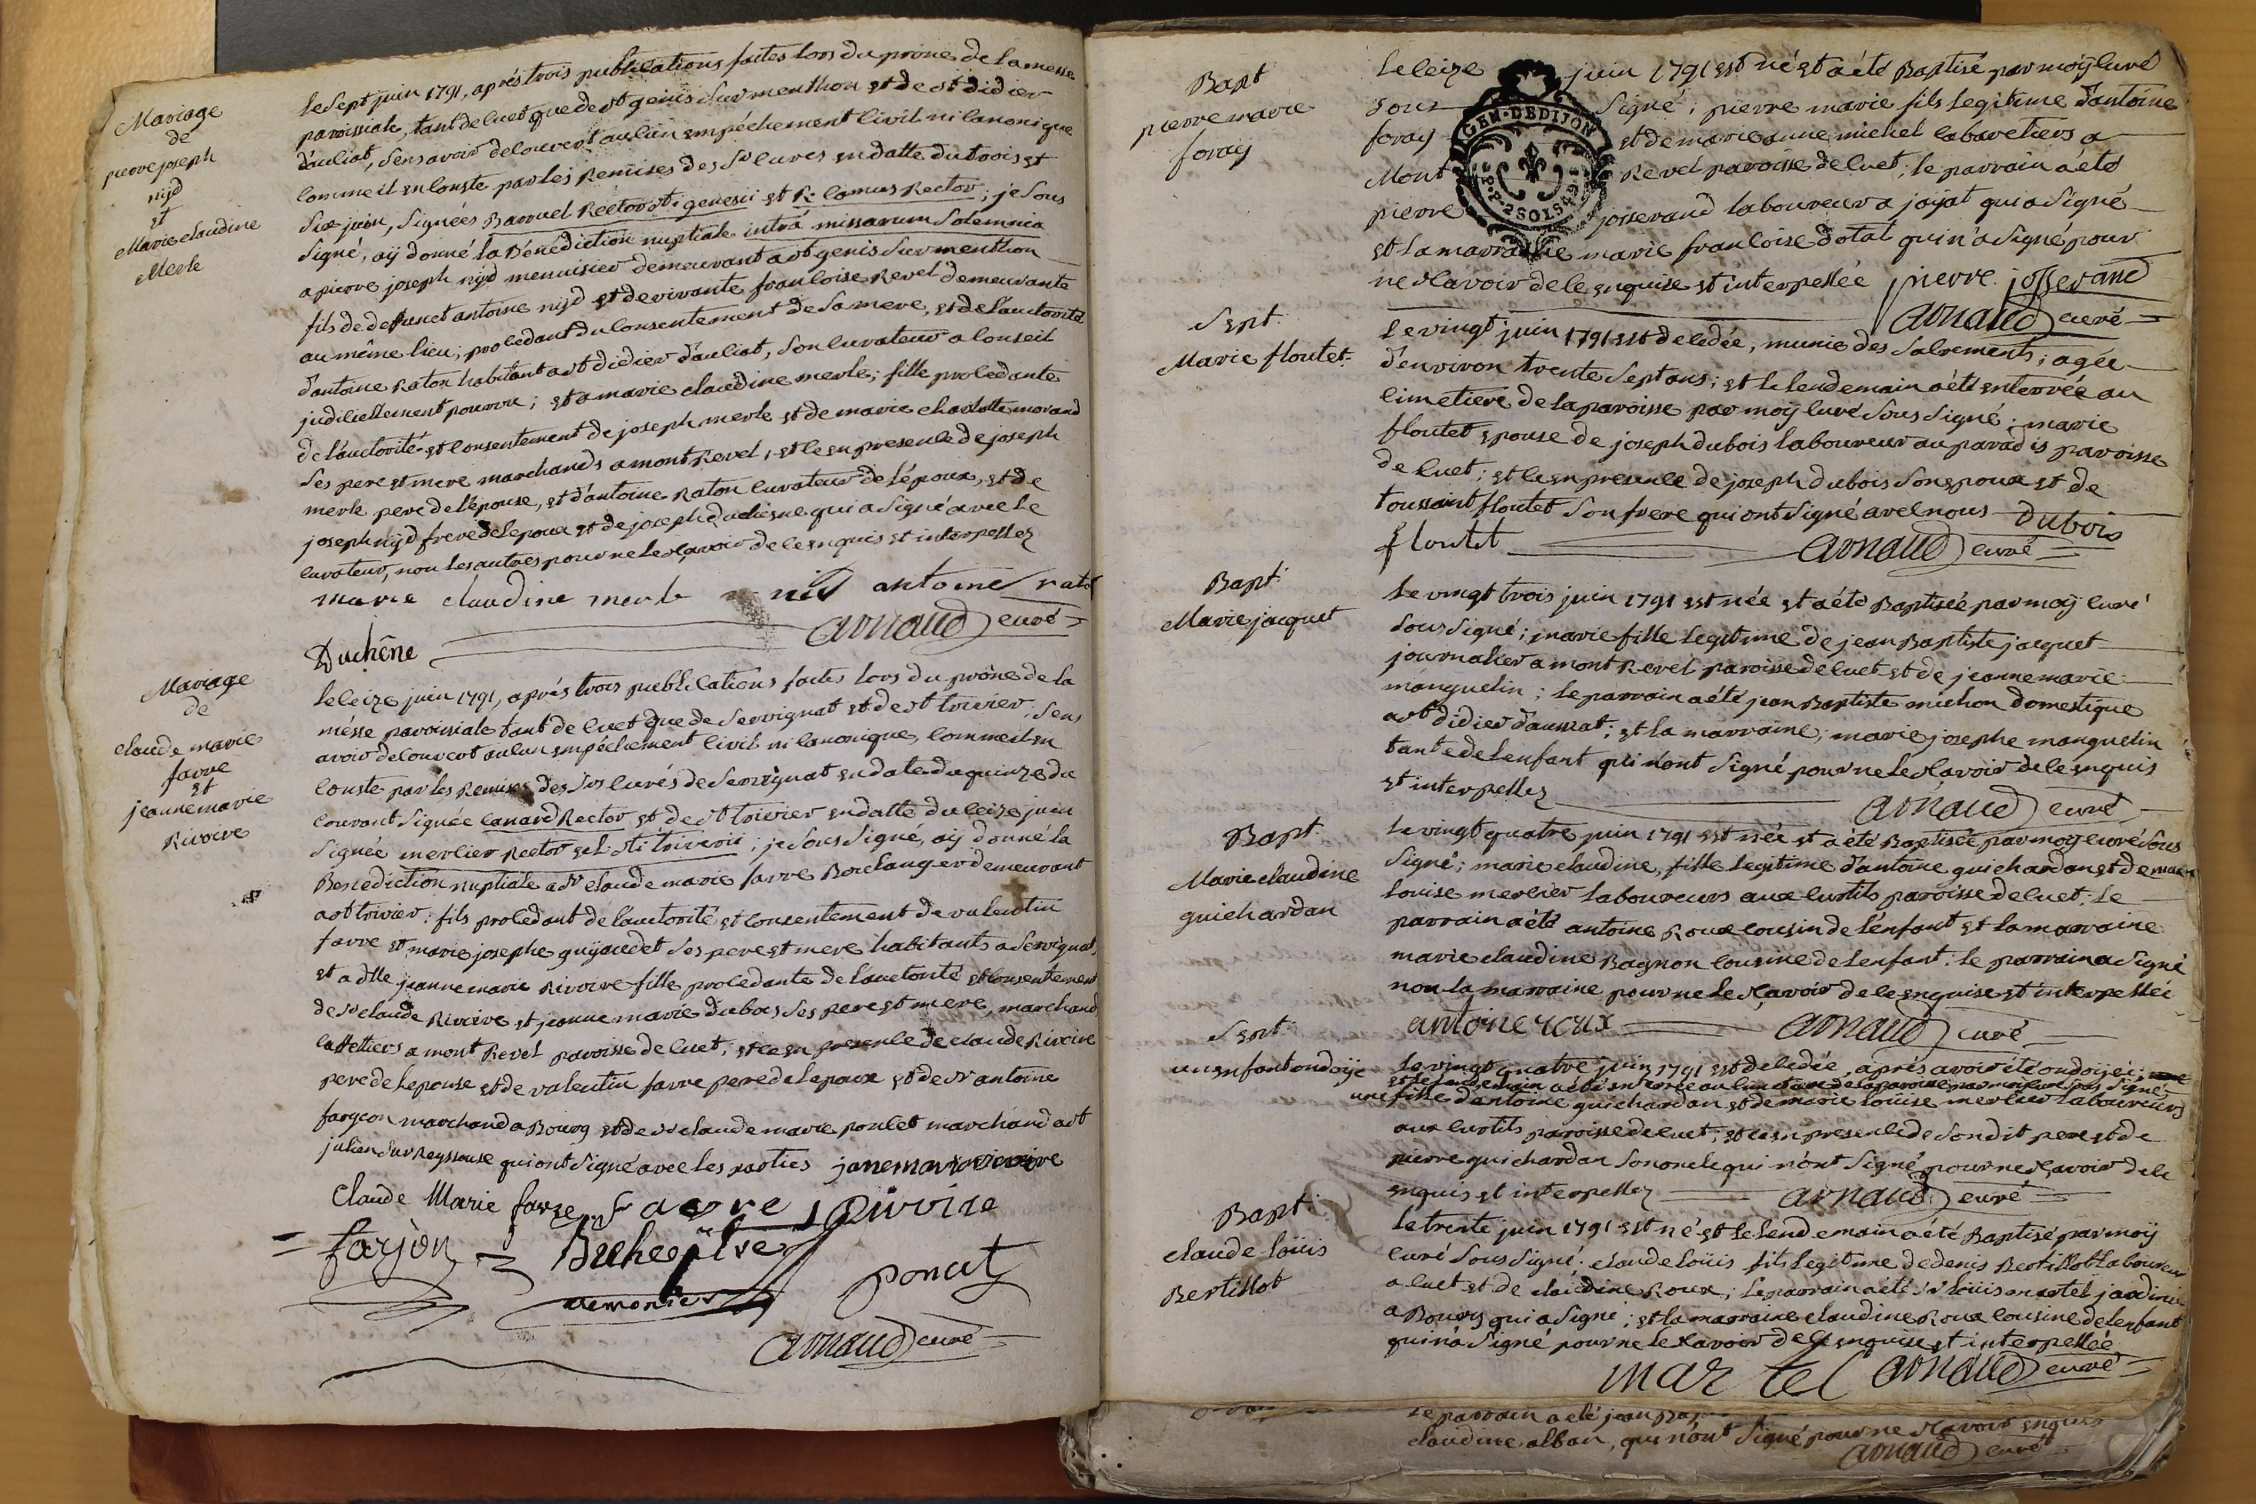 Mariage
de
pierre joseph
nyd
et
Marie claudine
Merle
le sept juin 1791, aprés trois publications faites lors du prône de la messe
paroissiale, tant de cuet que de st genis sur menthon et de st didier
d'auciat, sens avoir decouvert aucun empéchement civil ni canonique
comme il en conste par les Remises des Srs curés en datte du trois et
six juin, signées Barruel Rector sti genesii et R. camus Rector; je sous
signé, aÿ donné la Bénédiction nuptiale intrà missarum solemnia
a pierre joseph nyd menuisier demeurant a st genis sur menthon
fils de defunct antoine nyd et de vivante françoise Revel demeurante
au même lieu; procédant du consentement de sa mere, et de l'auctorité
d'antoine Raton habitant a st didier d'auciat, son curateur a conseil
judiciellement pourvu; et a marie claudine merle; fille procédante
de l'auctorité et consentement de joseph merle et de marie charlotte morand
ses pere et mere marchands a mont Revel, et ce en presence de joseph
merle pere de l'épouse, et d'antoine Raton curateur de l'époux, et de
joseph nyd frere de l'epoux et de joseph duchesne qui a signé avec le
curateur, non les autres pour ne le sçavoir de ce enquis et interpellez
marie claudine merle nid antoine raton
arnaud curé
Duchêne
Mariage
de
claude marie
favre
et
jeanne marie
Rivoire
le seize juin 1791, aprés trois publications faites lors du prône de la
mésse paroissiale tant de cuet que de servignat et de st trivier, sens
avoir decouvert aucun empéchement civil ni canonique, comme il en
conste par les Remises des Srs curés de servignat en date du quinze du
courant signée canard Rector et de st trivier en datte du seize juin
signée merlier Rector ecl. sti triverii; je sous signé, aÿ donné la
Benediction nuptiale a Sr claude marie favre Boulanger demeurant
a st trivier; fils procédant de l'auctorité et consentement de valentin
favre et marie josephe guyacdet ses pere et mere habitants a servignat,
et a dlle jeanne marie Rivoire fille procédante de l'auctorité et consentement
de Sr claude Rivoire et jeanne marie dubois ses pere et mere, marchands
cabettiers a mont Revel paroisse de cuet; et ce en presence de claude Rivoire
pere de lepouse et de valentin favre pere de lepoux et de Sr antoine
fargeon marchand a Bourg et de Sr claude marie poncet marchand a st
julien sur Reyssouse qui ont signé avec les parties jane marie rivoire
Claude Marie favre Favre Rivoire
farjon
poncet
arnaud curé
Bapt
pierre marie
foray
Le seize juin 1791 est né et a été Baptisé par moÿ curé
sous signé; pierre marie fils legitime d'antoine
foray et de marie anne michel cabaretiers a
Mont Revel paroisse de cuet; le parrain a été
pierre josserand laboureur a jayat qui a signé
et la marraine marie françoise dotal qui n'a signé pour
ne sçavoir de ce enquise et interpellée pierre josserand
arnaud curé
GEN. DE DIJON
2 SOLS
Sept.
Marie floutet
Le vingt juin 1791 est decedée, munie des sacrements; agée
d'environ trente sept ans; et le lendemain a été enterrée au
cimetiere de la paroisse par moÿ curé sous signé; marie
floutet epouse de joseph dubois laboureur au paradis paroisse
de cuet; et ce en presence de joseph dubois son epoux et de
toussaint floutet son frere qui ont signé avec nous Dubois
floutet arnaud curé
Bapt.
Marie jacquet
le vingt trois juin 1791 est née et a été Baptisée par moÿ curé
sous signé; marie fille legitime de jean Baptiste jacquet
journalier a mont Revel paroisse de cuet et de jeanne marie
manguelin; le parrain a été jean Baptiste michon domestique
a st didier d'aussiat; et la marraine, marie josephe manguelin
tante de lenfant qui n'ont signé pour ne le sçavoir de ce enquis
et interpellez arnaud curé
Bapt.
Marie claudine
guichardan
Le vingt quatre juin 1791 est née et a été Baptisée par moÿ curé sous
signé; marie claudine, fille legitime d'antoine guichardan et de marie
louise mercier laboureurs aux curtils paroisse de cuet; le
parrain a été antoine Roux cousin de l'enfant et la marraine
marie claudine Bagnon cousine de lenfant. le parrain a signé
non la marraine pour ne le sçavoir de ce enquise et interpellée
antoine roux arnaud curé
Sept.
un enfant ondoÿé
Le vingt quatre juin 1791 est decedée, aprés avoir été ondoÿée;
et le lendemain a été enterrée au cimetiere de la paroisse par moi curé sous signé
une fille d'antoine guichardan et de marie loüise mercier laboureurs
aux curtils paroisse de cuet; et ce en presence de son dit pere et de
pierre guichardan son oncle qui n'ont signé pour ne sçavoir de ce
enquis et interpellez arnaud curé
Bapt.
claude loüis
Bertillot
Le trente juin 1791 est né et le lendemain a été Baptisé par moÿ
curé sous signé; claude loüis fils legitime de denis Bertillot laboureur
a cuet et de claudine Roux; le parrain a été Sr loüis martel jardinier
a Bourg qui a signé; et la marraine claudine Roux cousine de lenfant
qui n'a signé pour ne le sçavoir de ce enquise et interpellée
martel arnaud curé
le parrain a été jean
claudine alban, qui n'ont signé pour ne sçavoir enquis
arnaud curé